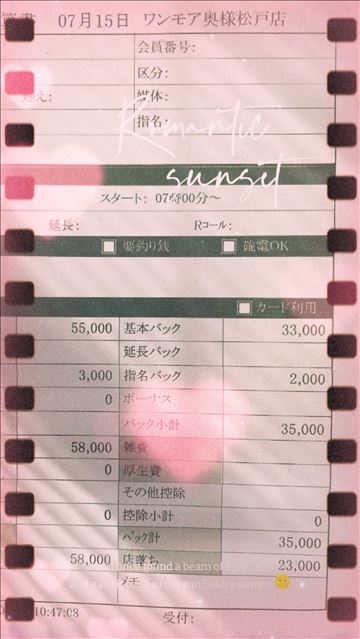 07月15日 ワンモア奥様松戸店
会員番号:
区分:
媒体:
指名:
Romantic
sunset
スタート: 07時00分～
延長: Rコール:
要釣り銭 確電OK
カード利用
55,000 基本バック 33,000
延長バック
3,000 指名バック 2,000
0 ボーナス
バック小計 35,000
58,000 雑費
0 厚生費
その他控除
0 控除小計 0
バック計 35,000
58,000 店落ち 23,000
I once found a beam of light
メモ
sun before sunset
10:47:08 受付: